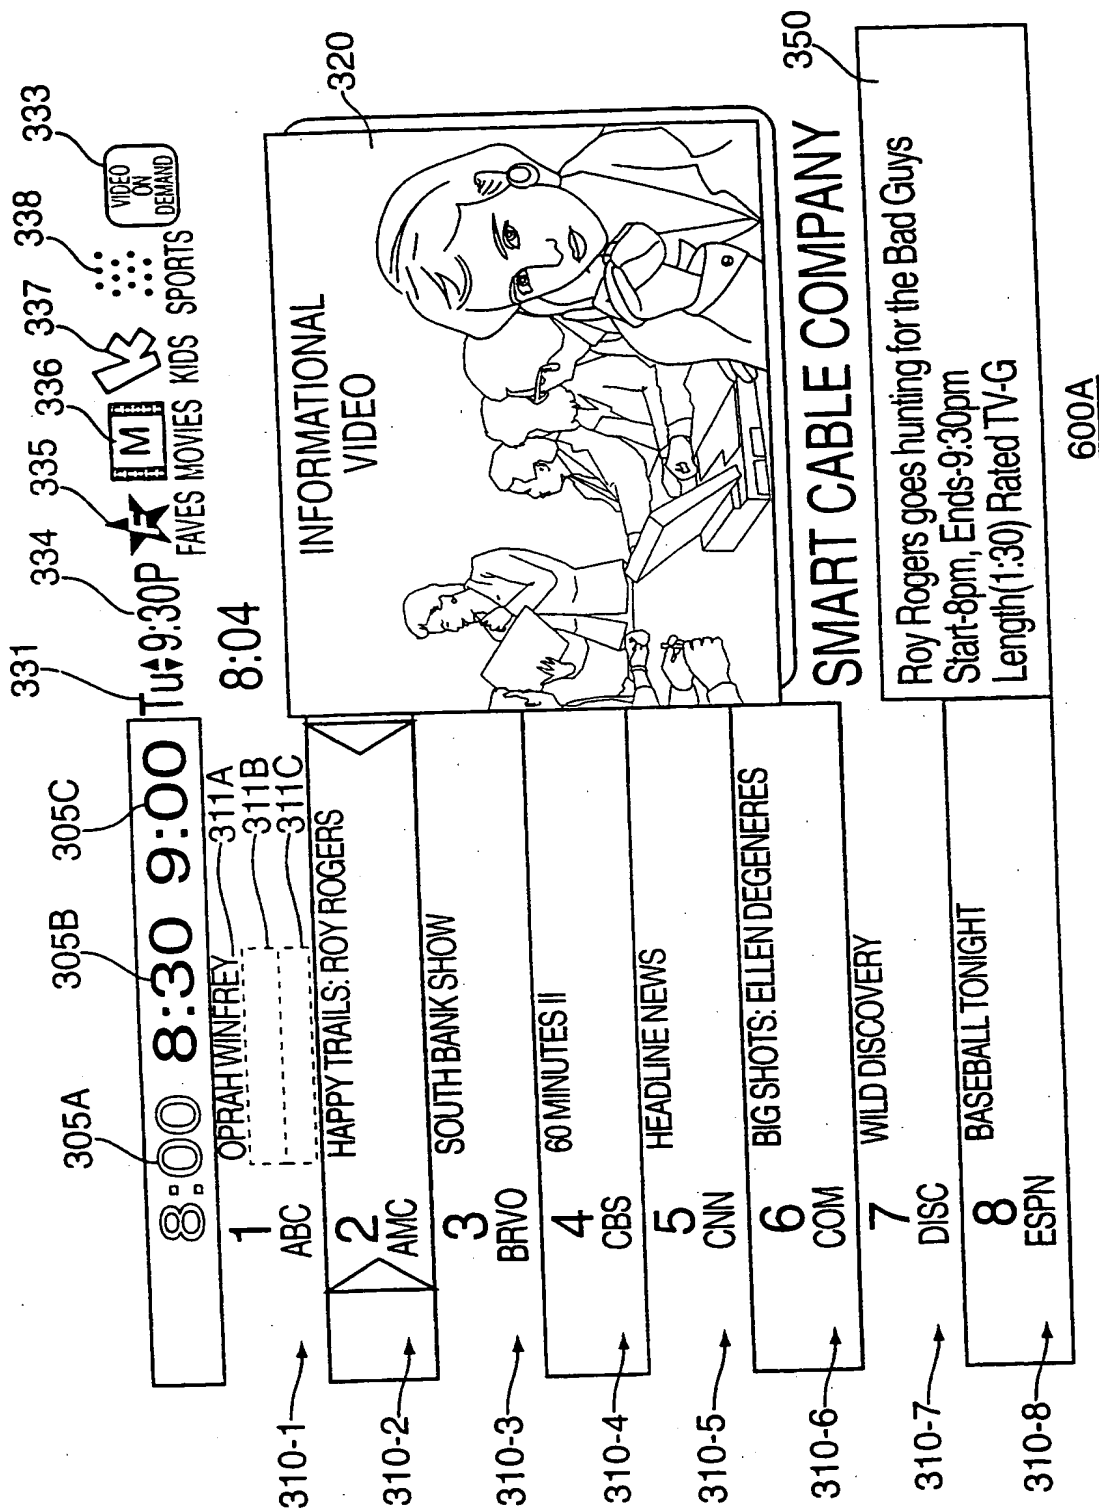 331 334 335 336 337 338 333
305A 305B 305C
8:00 8:30 9:00 Tu 9:30P F M K VIDEO ON DEMAND
FAVES MOVIES KIDS SPORTS
8:04
310-1 1 ABC OPRAH WINFREY 311A 311B 311C
310-2 2 AMC HAPPY TRAILS: ROY ROGERS
310-3 3 BRVO SOUTH BANK SHOW
310-4 4 CBS 60 MINUTES II
310-5 5 CNN HEADLINE NEWS
310-6 6 COM BIG SHOTS: ELLEN DEGENERES
310-7 7 DISC WILD DISCOVERY
310-8 8 ESPN BASEBALL TONIGHT
INFORMATIONAL
VIDEO
320
SMART CABLE COMPANY
350
Roy Rogers goes hunting for the Bad Guys
Start-8pm, Ends-9:30pm
Length(1:30) Rated TV-G
600A